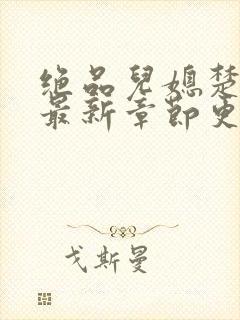 绝品儿媳楚
最新章节更
戈斯曼